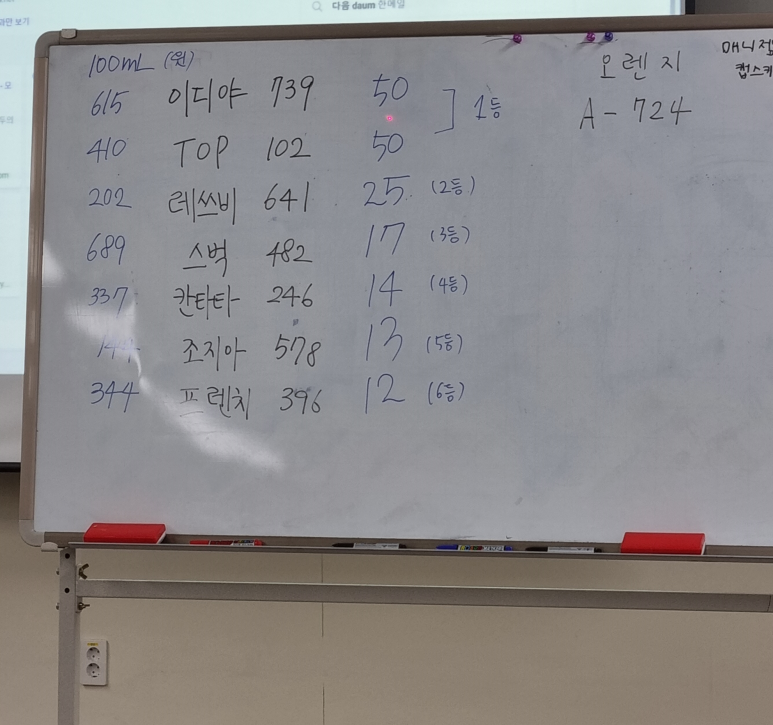 다음 daum 한메일
100mL (원)
615 이디야 739 50
1등
410 TOP 102 50
202 레쓰비 641 25 (2등)
689 스벅 482 17 (3등)
337 칸타타 246 14 (4등)
조지아 578 13 (5등)
344 프렌치 396 12 (6등)
오렌지
A - 724